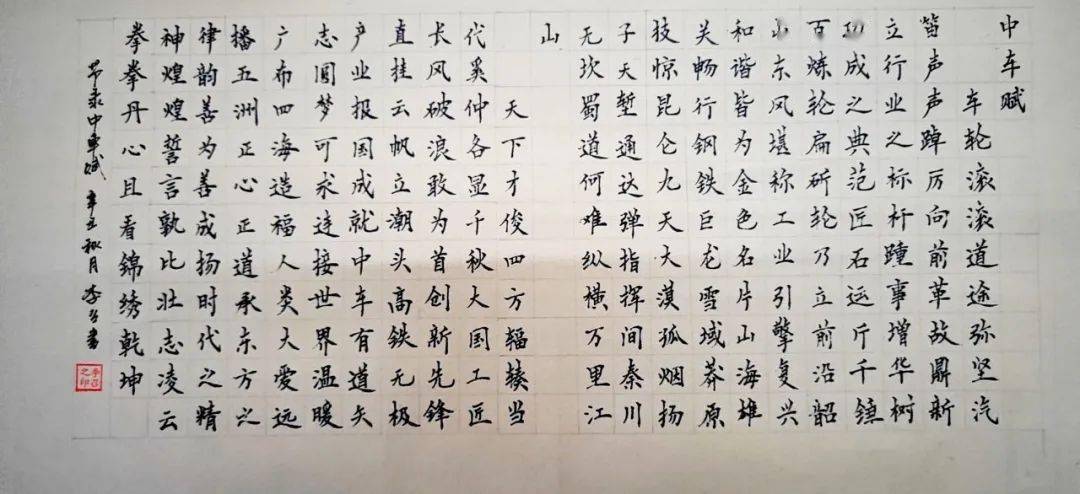 中车赋
车轮滚滚道途弥坚汽
笛声声踔厉向前革故鼎新
立行业之标杆踵事增华树
功成之典范匠石运斤千锤
百炼轮扁斫轮乃立前沿韶
山东风堪称工业引擎复兴
和谐皆为金色名片山海雄
关畅行钢铁巨龙雪域莽原
技惊昆仑九天大漠孤烟扬
子天堑通达弹指挥间秦川
无坎蜀道何难纵横万里江
山
天下才俊四方辐辏当
代奚仲各显千秋大国工匠
长风破浪敢为首创新先锋
直挂云帆立潮头高铁无极
产业报国成就中车有道矢
志圆梦可求连接世界温暖
广布四海造福人类大爱远
播五洲正心正道承东方之
律韵善为善成扬时代之精
神煌煌誓言孰比壮志凌云
拳拳丹心且看锦绣乾坤
节录中车赋 辛丑秋月 李书